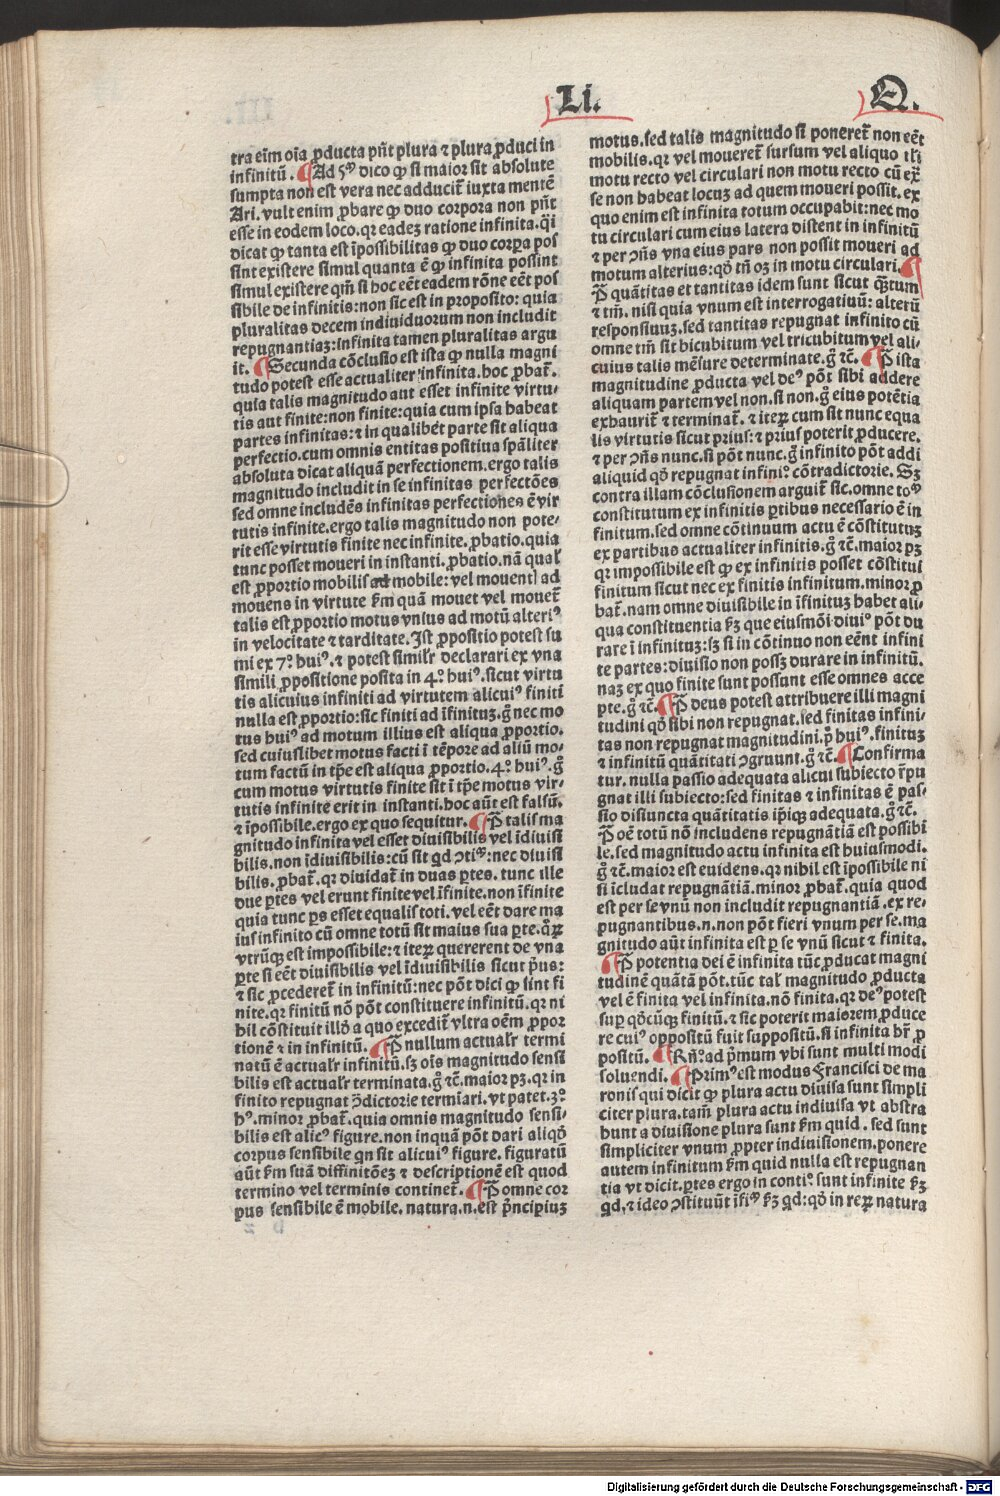 Li. Q.
tra eīm oīa ꝓducta pn̄t plura ⁊ plura ꝓduci in
infinitū. ¶ Ad 5ᵐ dico ꝙ si maior sit absolute
sumpta non est vera nec adducit̄ iuxta mentē
Ari. vult enim ꝓbare ꝙ duo corpora non pn̄t
esse in eodem loco. qꝛ eadeȝ ratione infinita. q̄i
dicat ꝙ tanta est īpossibilitas ꝙ duo corꝑa pos
sint existere simul quanta ē ꝙ infinita possint
simul existere qm̄ si hoc eēt eadem rōne eēt pos
sibile de infinitis: non sic est in proposito: quia
pluralitas decem indiuiduorum non includit
repugnantiaȝ: infinita tamen pluralitas argu
it. ¶ Secunda cōclusio est ista ꝙ nulla magni
tudo potest esse actualiter infinita. hoc ꝓbat̄.
quia talis magnitudo aut esset infinite virtu⸗
tis aut finite: non finite: quia cum ipsa habeat
partes infinitas: ⁊ in qualibet parte sit aliqua
perfectio. cum omnis entitas positiua spāliter
absoluta dicat aliquā perfectionem. ergo talis
magnitudo includit in se infinitas perfectōes
sed omne includēs infinitas perfectiones ē vir
tutis infinite. ergo talis magnitudo non pote⸗
rit esse virtutis finite nec infinite. ꝓbatio. quia
tunc posset moueri in instanti. ꝓbatio. nā qual̄
est ꝓportio mobilis ad mobile: vel mouentl ad
mouens in virtute ẜm quā mouet vel mouet̄
talis est ꝓportio motus vnius ad motū alteriꝰ
in velocitate ⁊ tarditate. Ist ꝓpositio potest su
mi ex 7.° huiꝰ. ⁊ potest simil̄r declarari ex vna
simili ꝓpositione posita in 4.° huiꝰ. sicut virtu
tis alicuius infiniti ad virtutem alicuiꝰ finiti
nulla est ꝓportio: sic finiti ad īfinituȝ. g̊ nec mo
tus huiꝰ ad motum illius est aliqua ꝓportio.
sed cuiuslibet motus facti ī tēpore ad aliū mo⸗
tum factū in tp̄e est aliqua ꝓportio. 4.° huiꝰ. g̊
cum motus virtutis finite sit ī tp̄e motus vir⸗
tutis infinite erit in instanti. hoc aūt est falsū.
⁊ īpossibile. ergo ex quo sequitur. ¶ P̄ talis ma
gnitudo infinita vel esset diuisibilis vel īdiuisi
bilis. non īdiuisibilis: cū sit qd ꝯtiᵐ: nec diuisi
bilis. ꝓbat̄. qꝛ diuidat̄ in duas ꝑtes. tunc ille
due ꝑtes vel erunt finite vel īfinite. non īfinite
quia tunc ꝑs esset equalis toti. vel eēt dare ma
ius infinito cū omne totū sit maius sua ꝑte. q̄ꝝ
vtrūqꝫ est impossibile: ⁊ iteꝝ quererent de vna
ꝑte si eēt diuisibilis vel īdiuisibilis sicut p̄us:
⁊ sic ꝓcederet̄ in infinitū: nec pōt dici ꝙ sint fi
nite. qꝛ finitū nō pōt constituere infinitū. qꝛ ni
bil cōstituit illð a quo excedit̄ vltra oēm ꝓpor
tionē ⁊ in infinitū. ¶ P̄ nullum actual̄r termi
natū ē actual̄r infinitū. sȝ oīs magnitudo sensi
bilis est actual̄r terminata. g̊ ⁊c̄. maior pȝ. qꝛ in
finito repugnat ꝯ̄dictorie termiari. vt patet. 3.°
hꝰ. minor ꝓbat̄. quia omnis magnitudo sensi⸗
bilis est alicꝰ figure. non inquā pōt dari aliqð
corpus sensibile qn sit alicuiꝰ figure. figuratū
aūt ẜm suā diffinitōeȝ ⁊ descriptionē est quod
termino vel terminis continet̄. ¶ P̄ omne cor
pus sensibile ē mobile. natura. n. est p̄ncipiuȝ
motus. sed talis magnitudo si poneret̄ non eēt
mobilis. qꝛ vel moueret̄ sursum vel aliquo tl̄i
motu recto vel circulari non motu recto cū ex̄
se non habeat locuȝ ad quem moueri possit. ex
quo enim est infinita totum occupabit: nec mo
tu circulari cum eius latera distent in infinitū
⁊ per ꝯn̄s vna eius pars non possit moueri ad
motum alterius: qð tn̄ oȝ in motu circulari. ¶
P̄ quātitas et tantitas idem sunt sicut qᷓtum
⁊ tm̄. nisi quia vnum est interrogatiuū: alterū
responsiuuȝ. sed tantitas repugnat infinito cū
omne tm̄ sit bicubitum vel tricubitum vel ali⸗
cuius talis mēsure determinate. g̊ ⁊c̄. ¶ P̄ ista
magnitudine ꝓducta vel deꝰ pōt sibi addere
aliquam partem vel non. si non. g̊ eius potētia
exhaurit̄ ⁊ terminat̄. ⁊ iteꝝ cum sit nunc equa
lis virtutis sicut prius: ⁊ prius poterit ꝓducere.
⁊ per ꝯn̄s nunc. si pōt nunc. g̊ infinito pōt addi
aliquid qð repugnat infini.° cōtradictorie. Sȝ
contra illam cōclusionem arguit̄ sic. omne toᵐ
constitutum ex infinitis ꝑtibus necessario ē in
finitum. sed omne cōtinuum actu ē cōstitutuȝ
ex partibus actualiter infinitis. g̊ ⁊c̄. maior pȝ
qꝛ impossibile est ꝙ ex infinitis posset cōstitui
finitum sicut nec ex finitis infinitum. minor ꝓ
bat̄. nam omne diuisibile in īfinituȝ habet ali⸗
qua constituentia ẜȝ que eiusmōi diuiꝰ pōt du
rare ī infinituȝ: sȝ si in cōtinuo non eēnt infini
te partes: diuisio non possȝ durare in infinitū.
naȝ ex quo finite sunt possunt esse omnes acce
pte. g̊ ⁊c̄. ¶ P̄ deus potest attribuere illi magni
tudini qð sibi non repugnat. sed finitas infini⸗
tas non repugnat magnitudini. p̄ huiꝰ. finituȝ
⁊ infinitū quātitati ꝯgruunt. g̊ ⁊c̄. ¶ Confirma
tur. nulla passio adequata alicui subiecto īrpu
gnat illi subiecto: sed finitas ⁊ infinitas ē pas⸗
sio disiuncta quātitatis ip̄iqꝫ adequata. g̊ ⁊c̄.
P̄ oē totū nō includens repugnātiā est possibi
le. sed magnitudo actu infinita est huiusmodi.
g̊ ⁊c̄. maior est euidens. qꝛ nibil est īpossibile ni
si īcludat repugnātiā. minor ꝓbat̄. quia quod
est per se vnū non includit repugnantiā. ex re⸗
pugnantibus. n. non pōt fieri vnum per se. ma
gnitudo aūt infinita est ꝑ se vnū sicut ⁊ finita.
¶ P̄ potentia dei ē infinita tūc ꝓducat magni
tudinē quātā pōt. tūc tal̄ magnitudo ꝓducta
vel ē finita vel infinita. nō finita. qꝛ deꝰ potest
suꝑ qðcūqꝫ finitū. ⁊ sic poterit maiorem ꝓduce
re cuiꝰ oppositū fuit suppositū. si infinita hr̄ ꝓ
positū. ¶ Rn̄.° ad p̄mum vbi sunt multi modi
soluendi. ¶ Primꝰ est modus Francisci de ma
ronis qui dicit ꝙ plura actu diuisa sunt simpli
citer plura. tam̄ plura actu indiuisa vt abstra
bunt a diuisione plura sunt ẜm quid. sed sunt
simpliciter vnum ꝓpter indiuisionem. ponere
autem infinitum ẜm quid nulla est repugnan
tia vt dicit. ꝑtes ergo in conti.° sunt infinite ẜȝ
qd. ⁊ ideo ꝯstituūt īfiᵐ ẜȝ qd: qð in reꝝ natura
Digitalisierung gefördert durch die Deutsche Forschungsgemeinschaft - DFG